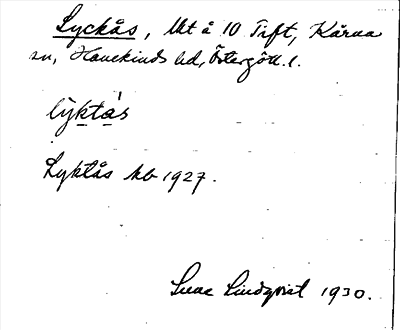 Lyckås, lht å 10 Tift, Kärna
sn, Hanekinds hd, Östergötl. l.
lyktås
Lyktås kb 1927.
Sune Lindqvist 1930.